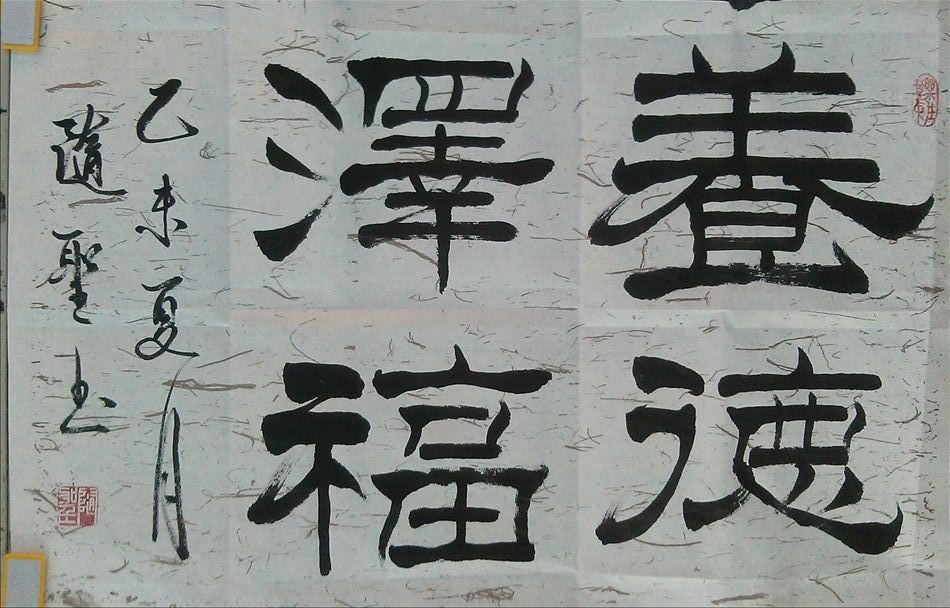 養德
澤福
乙未夏月
隨聖书